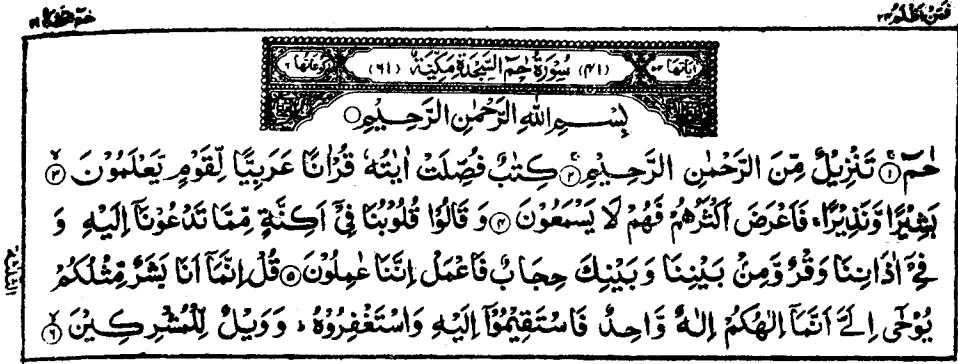 فمن اظلم ٢٤
حٰمٓ السجدة ٤١
اٰیاتها ٥٤ (٤١) سُوْرَةُ حٰمٓ السَّجْدَةِ مَكِّیَّةٌ (٦١) رکوعاتها ٦
بِسْمِ اللهِ الرَّحْمٰنِ الرَّحِیْمِ ○
حٰمٓ ۚ﴿١﴾ تَنْزِیْلٌ مِّنَ الرَّحْمٰنِ الرَّحِیْمِ ۚ﴿٢﴾ كِتٰبٌ فُصِّلَتْ اٰیٰتُهٗ قُرْاٰنًا عَرَبِیًّا لِّقَوْمٍ یَّعْلَمُوْنَ ۙ﴿٣﴾
بَشِیْرًا وَّنَذِیْرًا ۚ فَاَعْرَضَ اَكْثَرُهُمْ فَهُمْ لَا یَسْمَعُوْنَ ﴿٤﴾ وَ قَالُوْا قُلُوْبُنَا فِیْۤ اَكِنَّةٍ مِّمَّا تَدْعُوْنَاۤ اِلَیْهِ وَ
فِیْۤ اٰذَانِنَا وَقْرٌ وَّمِنْۢ بَیْنِنَا وَ بَیْنِكَ حِجَابٌ فَاعْمَلْ اِنَّنَا عٰمِلُوْنَ ﴿٥﴾ قُلْ اِنَّمَاۤ اَنَا بَشَرٌ مِّثْلُكُمْ
یُوْحٰۤی اِلَیَّ اَنَّمَاۤ اِلٰهُكُمْ اِلٰهٌ وَّاحِدٌ فَاسْتَقِیْمُوْۤا اِلَیْهِ وَاسْتَغْفِرُوْهُ ؕ وَوَیْلٌ لِّلْمُشْرِكِیْنَ ۙ﴿٦﴾